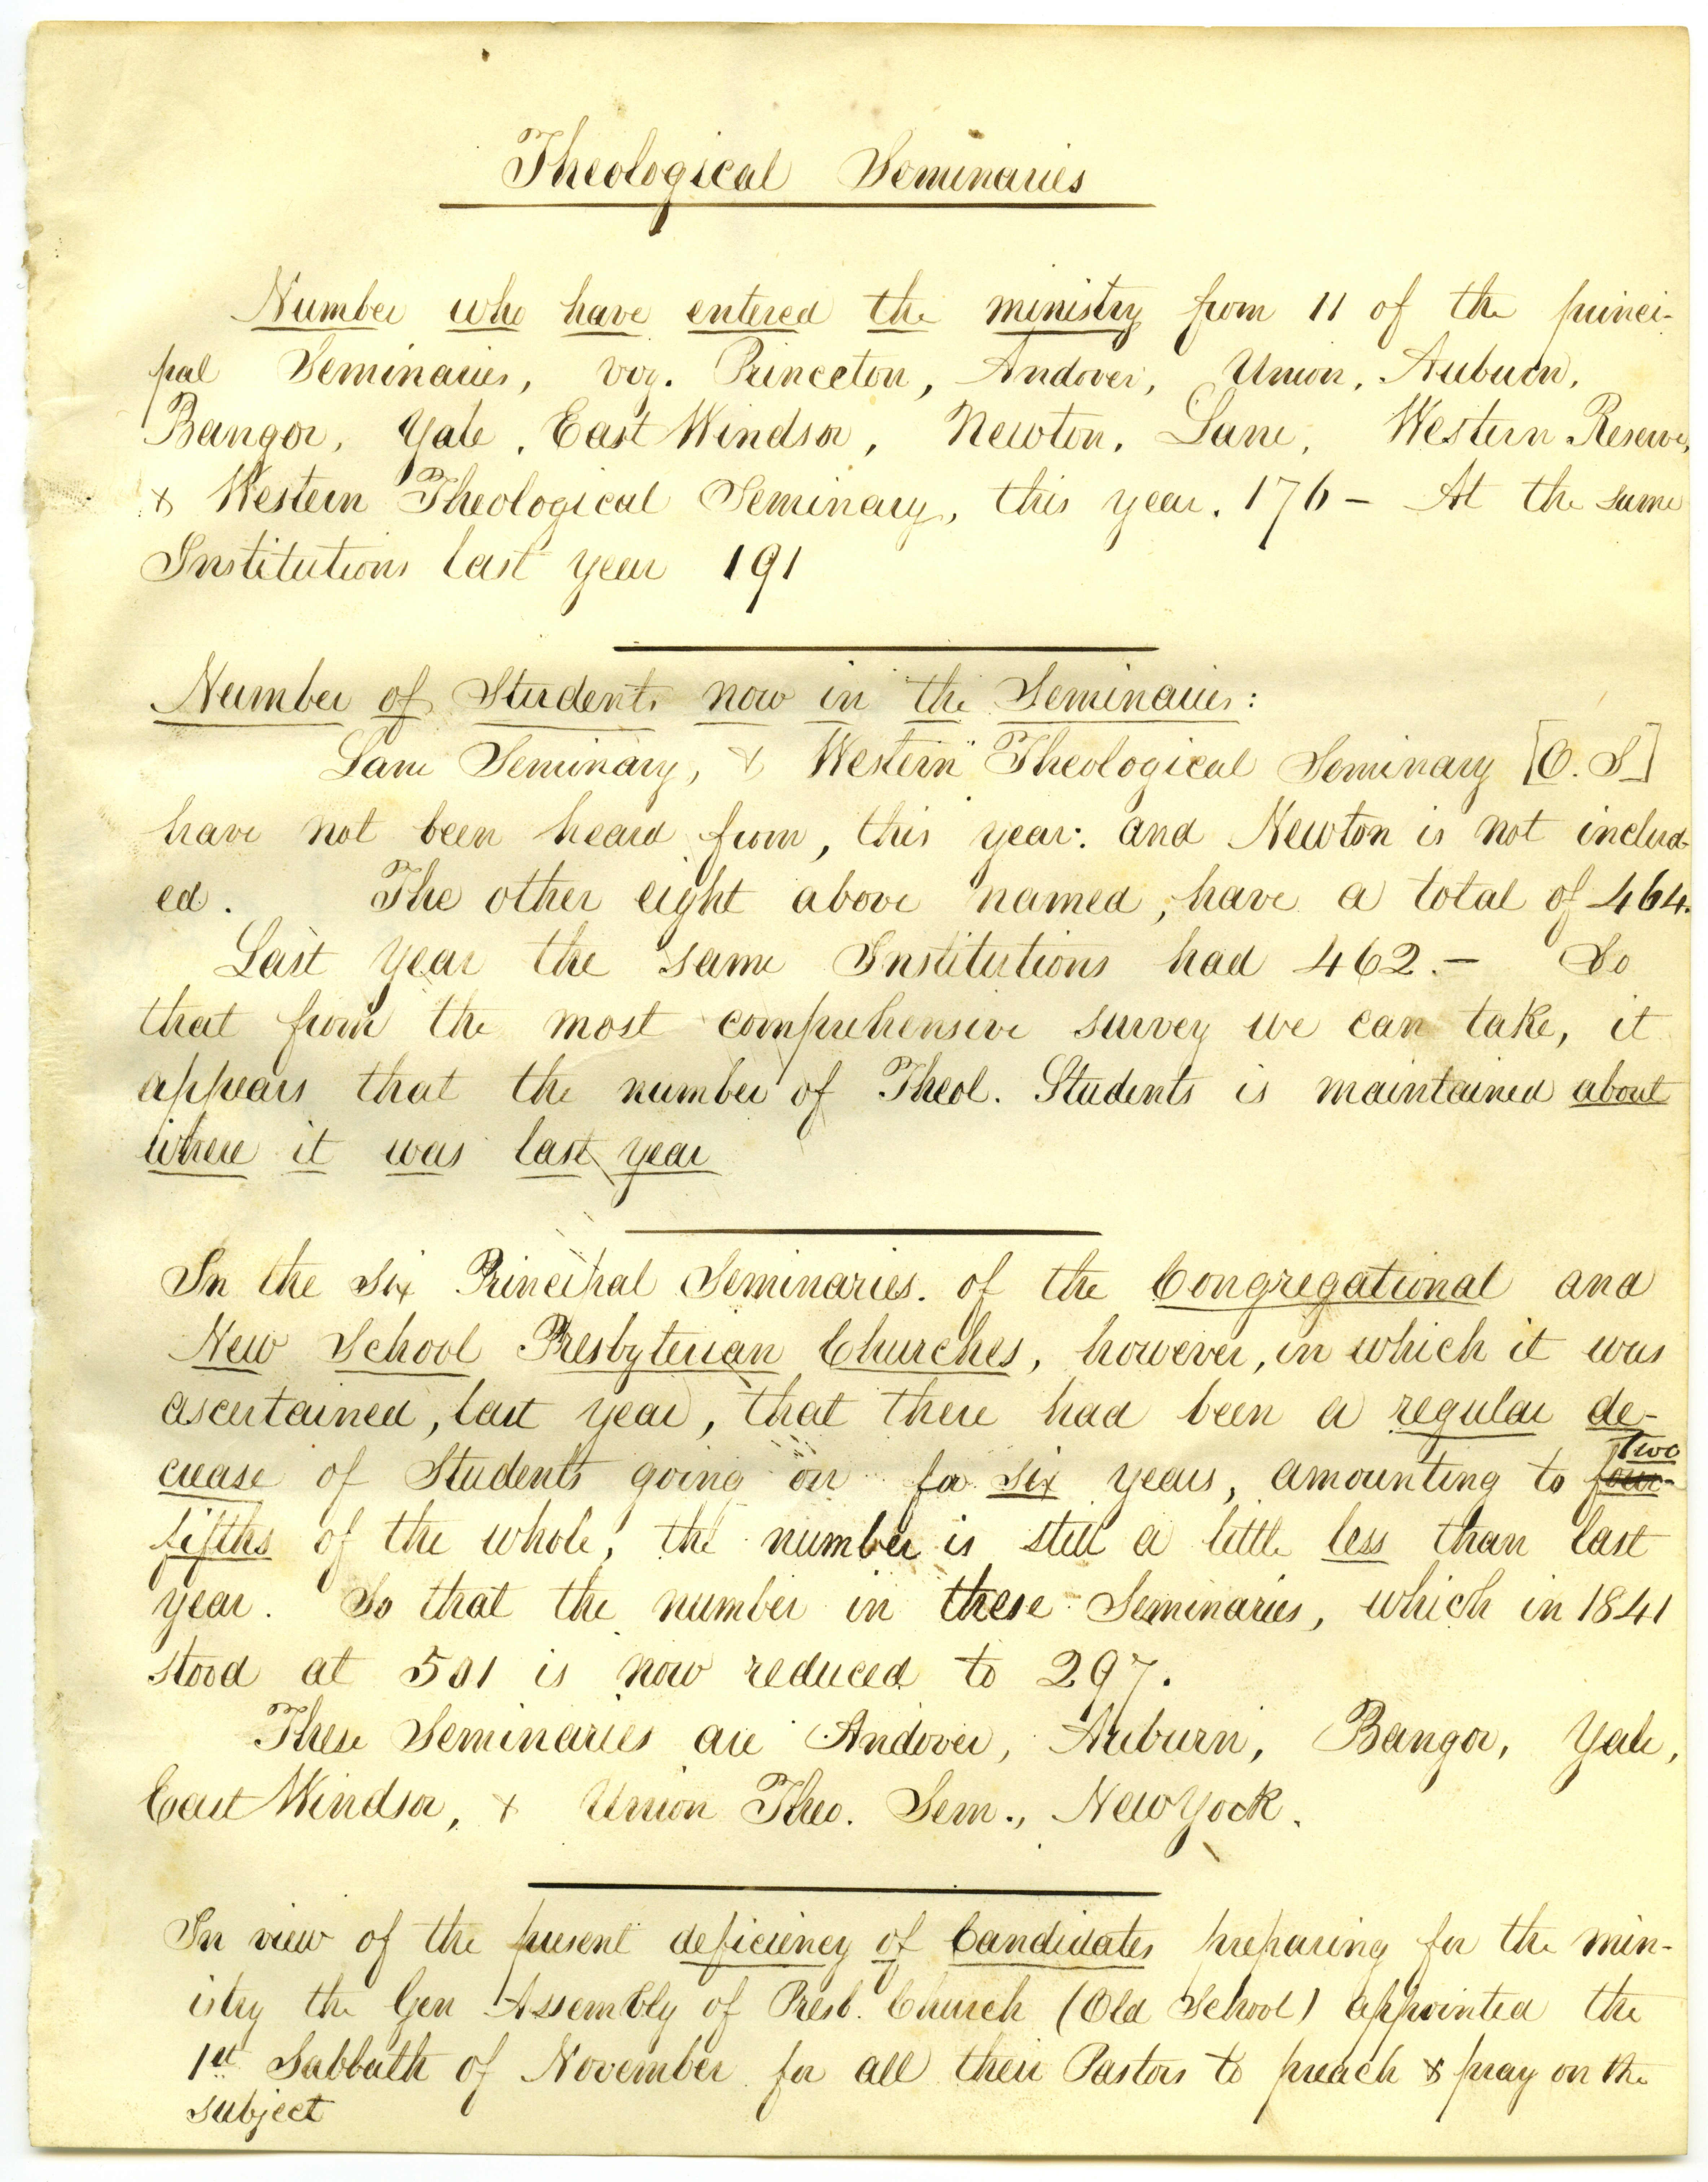 Theological Seminaries
Number who have entered the ministry from 11 of the princi-
pal Seminaries, viz. Princeton, Andover, Union, Auburn,
Bangor, Yale, East Windsor, Newton, Lane, Western Reserve,
& Western Theological Seminary, this year, 176 – At the same
Institutions last year 191
Number of Students now in the Seminaries:
Lane Seminary, & Western Theological Seminary [O. S]
have not been heard from, this year: and Newton is not includ-
ed. The other eight above named, have a total of 464.
Last year the same Institutions had 462. – So
that from the most comprehensive survey we can take, it
appears that the number of Theol. Students is maintained about
where it was last year
In the six Principal Seminaries of the Congregational and
New School Presbyterian Churches, however, in which it was
ascertained, last year, that there had been a regular de-
two
crease of Students going on for six years, amounting to four-
fifths of the whole, the number is still a little less than last
year. So that the number in these Seminaries, which in 1841
stood at 501 is now reduced to 297.
These Seminaries are Andover, Auburn, Bangor, Yale,
East Windsor, & Union Theo. Sem., New York.
In view of the present deficiency of Candidates preparing for the min-
istry the Gen Assembly of Presb. Church (Old School) appointed the
1st Sabbath of November for all their Pastors to preach & pray on the
subject